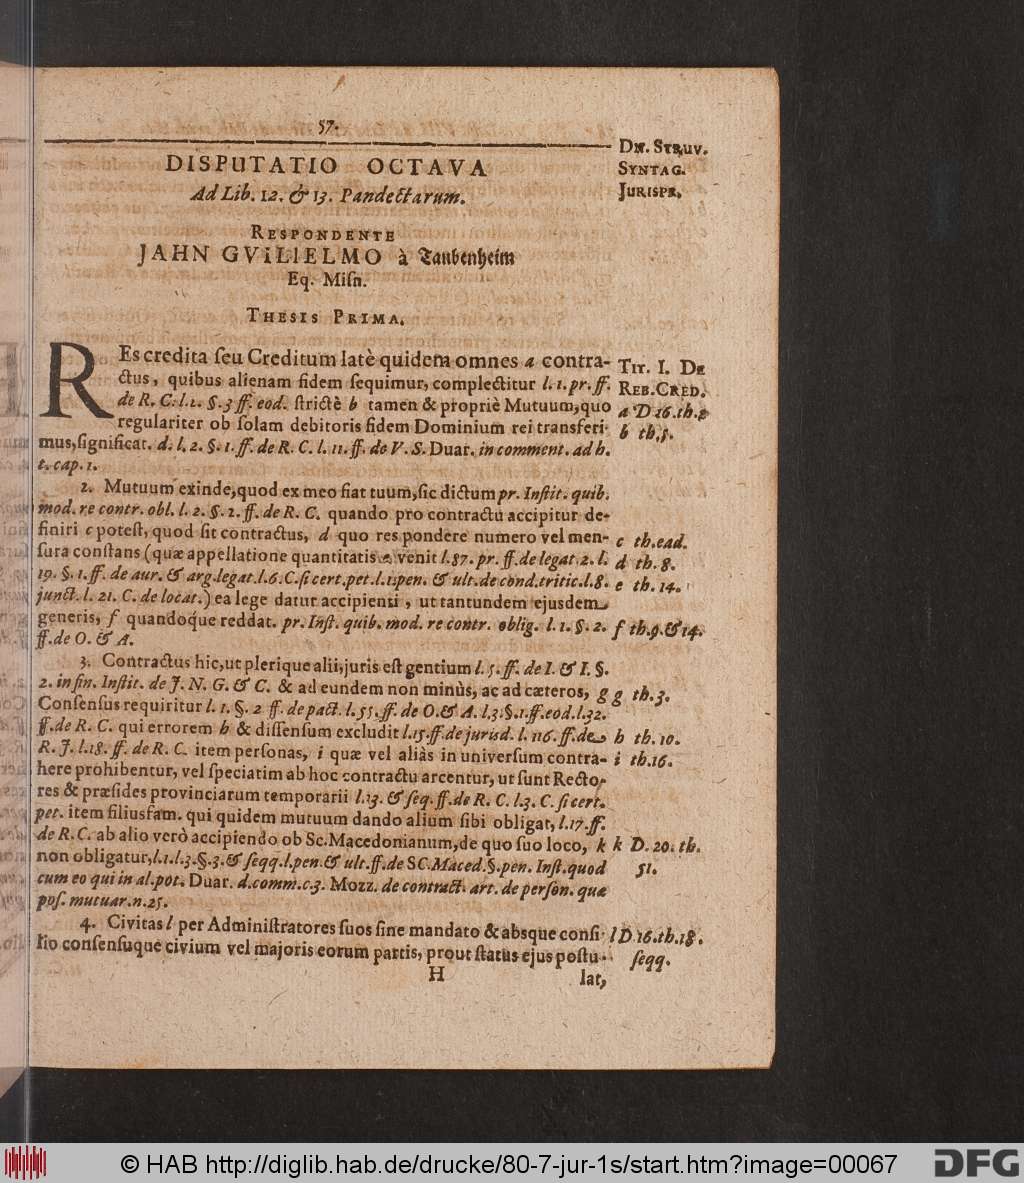 57.
DISPUTATIO OCTAVA
Ad Lib. 12. & 13. Pandectarum.
RESPONDENTE
JAHN GViLlELMO à Taubenheim
Eq. Miſn.
THESIS PRIMA.
DN. STRUV.
SYNTAG.
JURISPR.
REs credita ſeu Creditum latè quidem omnes a contra-
ctus, quibus alienam fidem ſequimur, complectitur l. 1. pr. ff.
de R. C. l. 2. §. 3 ff. eod. ſtrictè b tamen & propriè Mutuum, quo
regulariter ob ſolam debitoris fidem Dominium rei transferi-
mus, ſignificat. d. l. 2. §. 1. ff. de R. C. l. 11. ff. de V. S. Duar. in comment. ad h.
t. cap. 1.
TIT. I. DE
REB. CRED.
a D 16. th.
b th. 5.
2. Mutuum exinde, quod ex meo fiat tuum, ſic dictum pr. Inſtit. quib.
mod. re contr. obl. l. 2. §. 2. ff. de R. C. quando pro contractu accipitur de-
finiri c poteſt, quod ſit contractus, d quo res pondere numero vel men-
ſura conſtans (quæ appellatione quantitatis e venit l. 87. pr. ff. de legat. 2. l.
19. §. 1. ff. de aur. & arg. legat. l. 6. C. ſi cert. pet. l. 1. pen. & ult. de cond. tritic. l. 8.
junct. l. 21. C. de locat.) ea lege datur accipienti, ut tantundem ejusdem
generis, f quandoque reddat. pr. Inſt. quib. mod. re contr. oblig. l. 1. §. 2.
ff. de O. & A.
c th. ead.
d th. 8.
e th. 14.
f th. 9. & 14.
3. Contractus hic, ut plerique alii, juris eſt gentium l. 5. ff. de I. & I. §.
2. in fin. Inſtit. de J. N. G. & C. & ad eundem non minùs, ac ad cæteros, g
Conſenſus requiritur l. 1. §. 2 ff. de pact. l. 55. ff. de O. & A. l. 3. §. 1. ff. eod. l. 32.
ff. de R. C. qui errorem h & diſſenſum excludit l. 15. ff. de jurisd. l. 116. ff. de
R. J. l. 18. ff. de R. C. item perſonas, i quæ vel aliàs in univerſum contra-
here prohibentur, vel ſpeciatim ab hoc contractu arcentur, ut ſunt Recto-
res & præſides provinciarum temporarii l. 33. & ſeq. ff. de R. C. l. 3. C. ſi cert.
pet. item filiusfam. qui quidem mutuum dando alium ſibi obligat, l. 17. ff.
de R. C. ab alio verò accipiendo ob Sc. Macedonianum, de quo ſuo loco, k
non obligatur, l. 1. l. 3. §. 3. & ſeqq. l. pen. & ult. ff. de SC. Maced. §. pen. Inſt. quod
cum eo qui in al. pot. Duar. d. comm. c. 3. Mozz. de contract. art. de perſon. quæ
poſ. mutuar. n. 25.
g th. 3.
h th. 10.
i th. 16.
k D. 20. th.
51.
4. Civitas l per Adminiſtratores ſuos ſine mandato & absque conſi-
lio conſenſuque civium vel majoris eorum partis, prout ſtatus ejus poſtu-
l D. 16. th. 18.
ſeqq.
H
lat,
© HAB http://diglib.hab.de/drucke/80-7-jur-1s/start.htm?image=00067
DFG